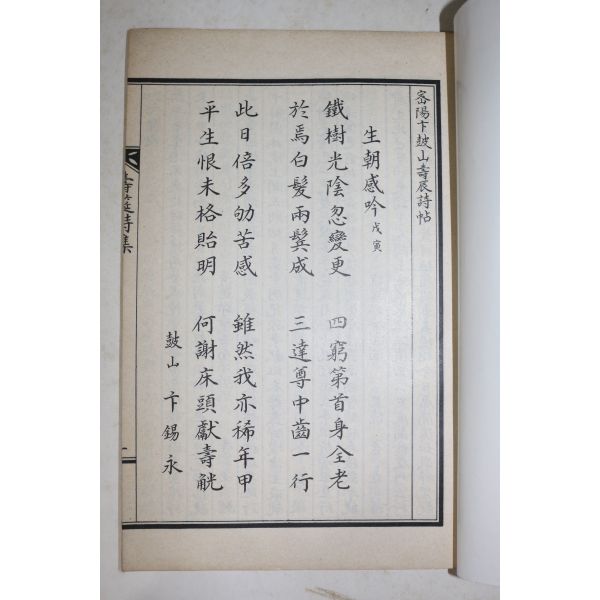 宻陽卞皷山壽辰詩帖
生朝感吟 戊寅
鐵樹光陰忽變更 四窮第首身全老
於焉白髮兩鬂成 三達尊中齒一行
此日倍多劬苦感 雖然我亦稀年甲
平生恨未格貽明 何謝床頭獻壽觥
皷山 卞錫永
筵詩集